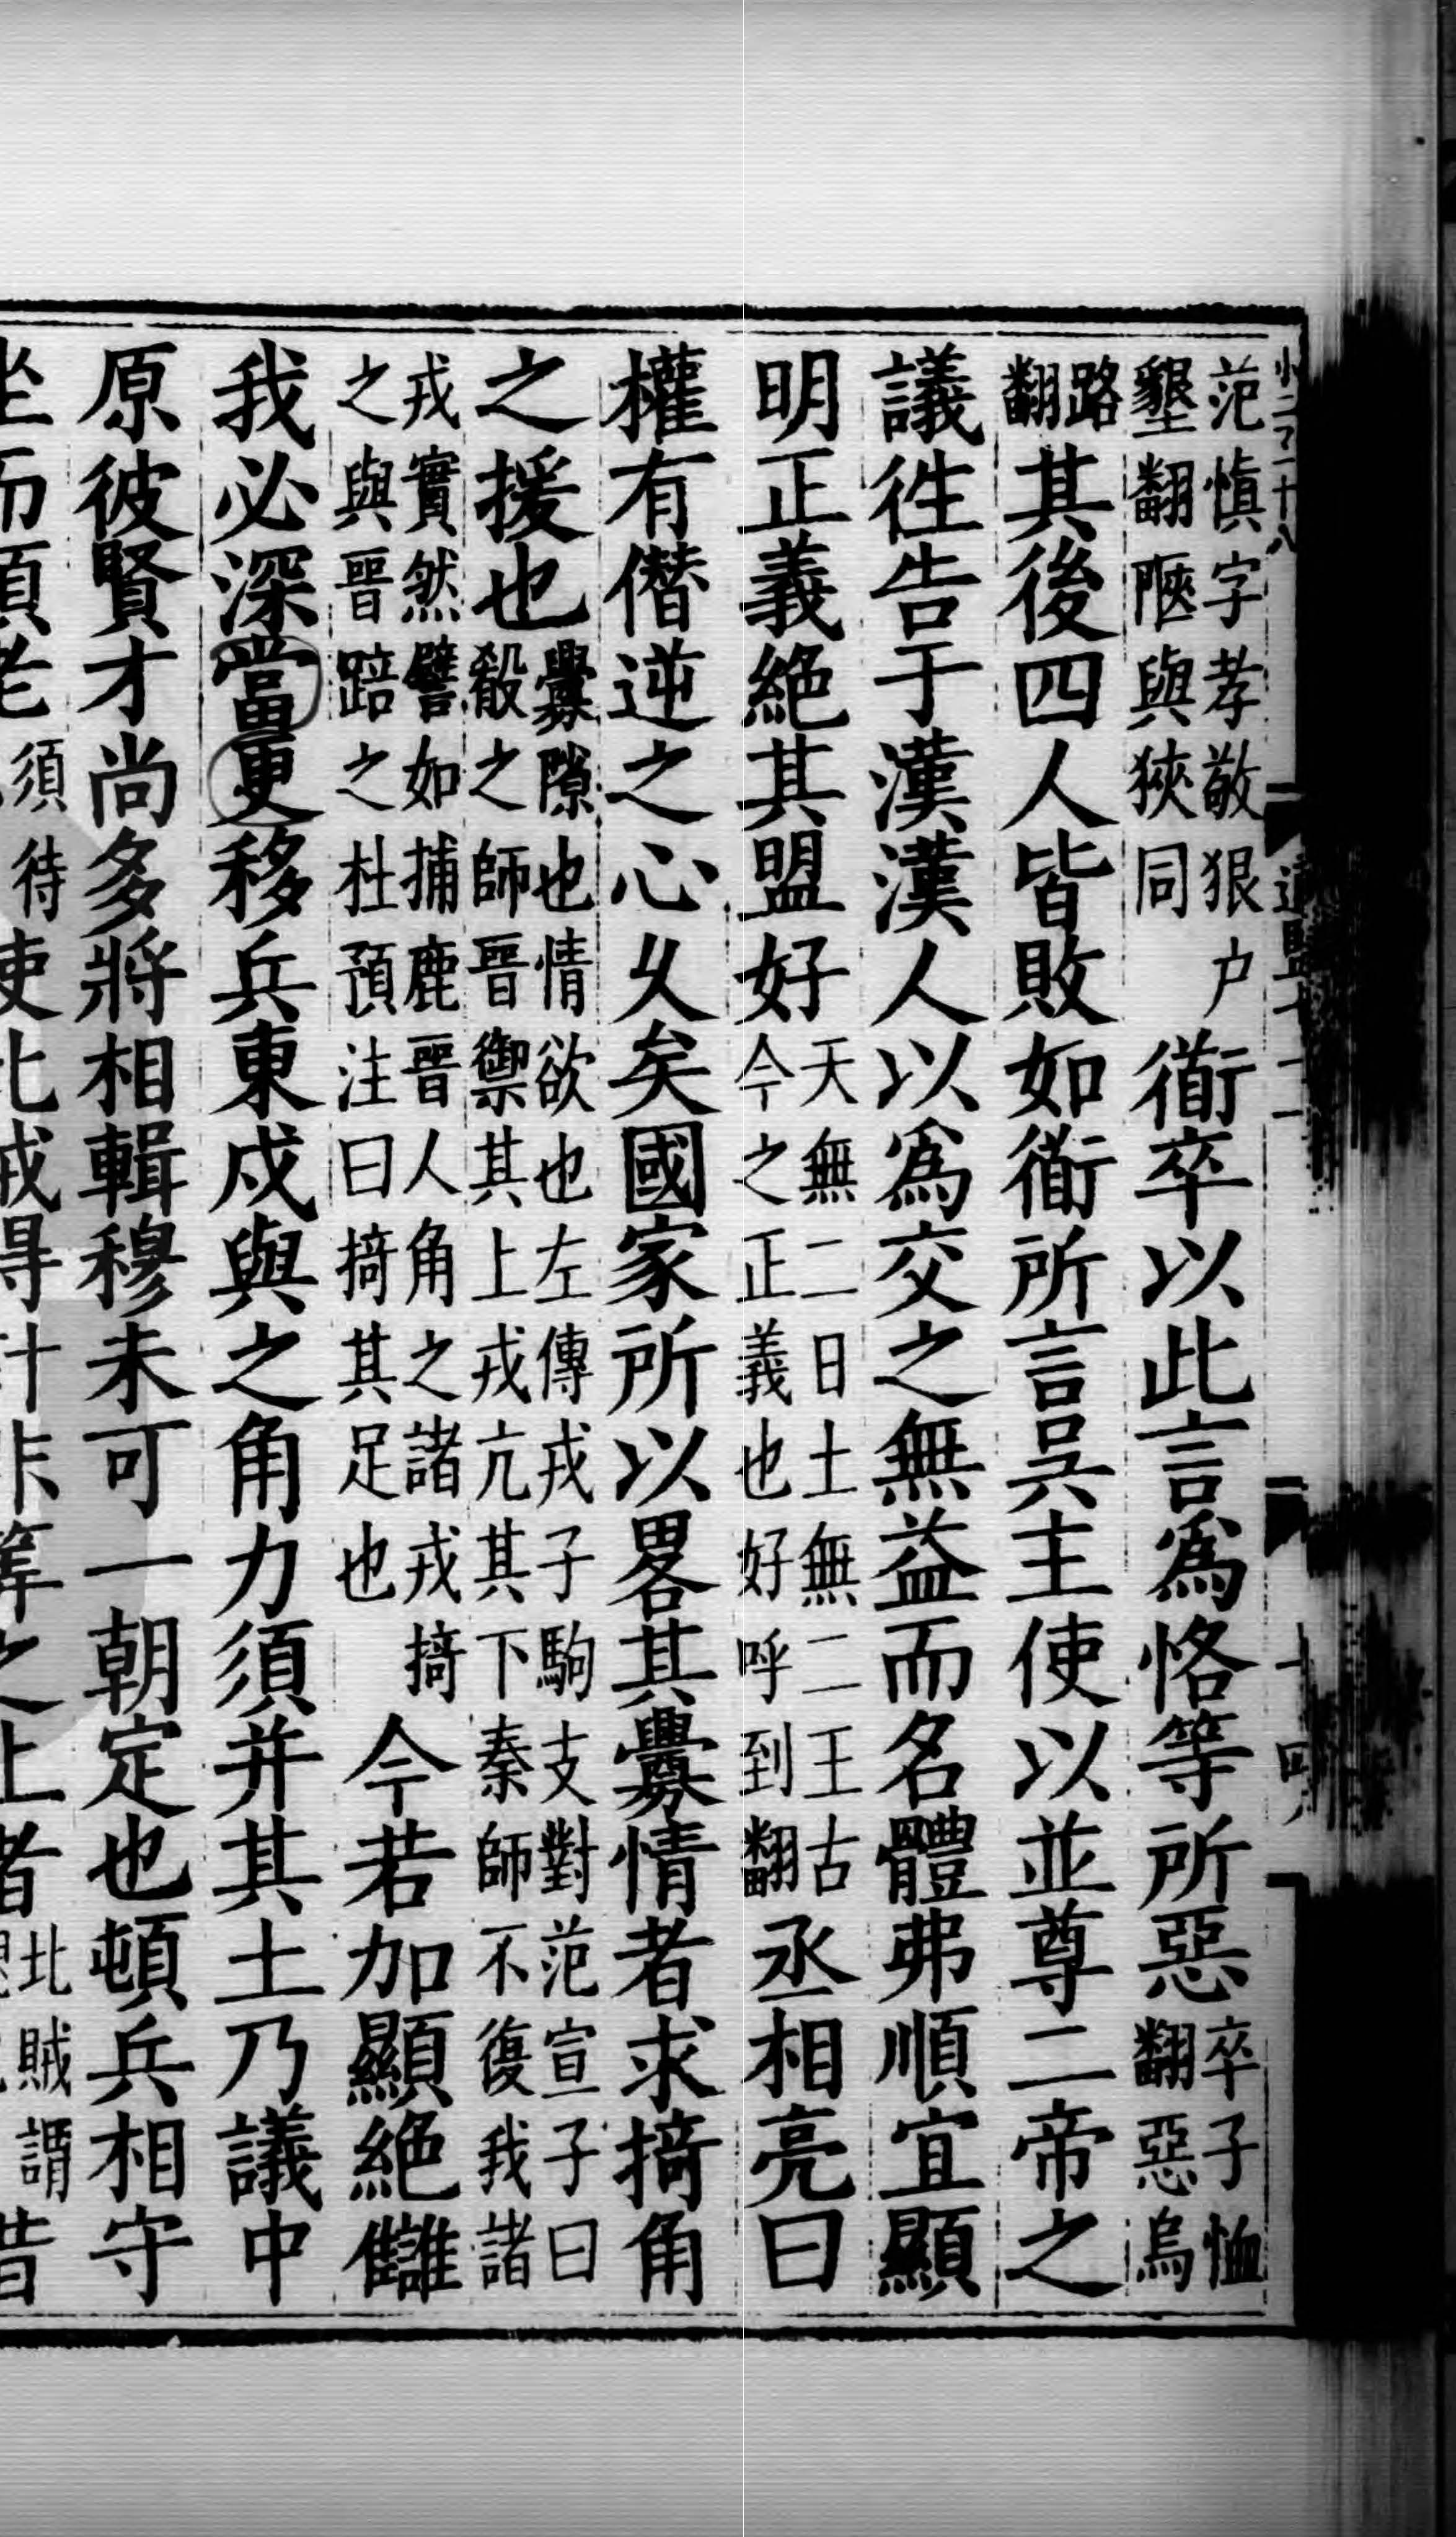 范慎字孝敬狠户
墾翻陿與狹同
衜卒以此言爲恪等所惡
卒子恤
翻惡烏
路
翻
其後四人皆敗如衜所言吳主使以並尊二帝之
議徃告于漢漢人以爲交之無益而名體弗順宜顯
明正義絶其盟好
天無二日土無二王古
今之正義也好呼到翻
丞相亮曰
權有僭逆之心乆矣國家所以畧其釁情者求掎角
之援也
釁隙也情欲也左傳戎子駒支對范宣子曰
殽之師晉禦其上戎亢其下秦師不復我諸
戎實然譬如捕鹿晉人角之諸戎掎
之與晉踣之杜預注曰掎其足也
今若加顯絶讎
我必深當更移兵東戍與之角力須并其土乃議中
原彼賢才尚多將相輯穆未可一朝定也頓兵相守
坐而須老
須待
使北賊得計非算之上者
北賊謂